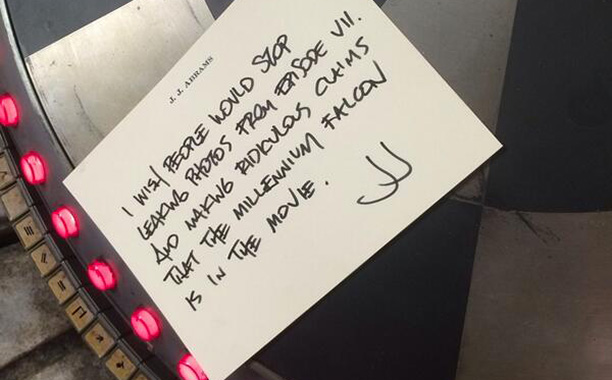 J. J. ABRAMS
I WISH PEOPLE WOULD STOP
LEAKING PHOTOS FROM EPISODE VII.
AND MAKING RIDICULOUS CLAIMS
THAT THE MILLENNIUM FALCON
IS IN THE MOVIE.
JJ